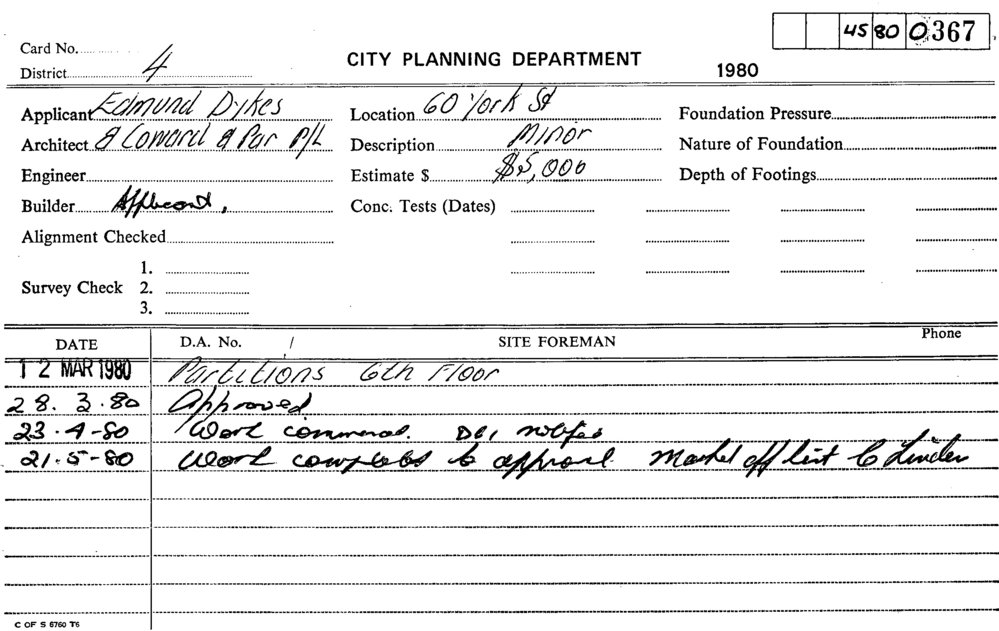 45 80 0367
Card No.
CITY PLANNING DEPARTMENT
1980
District 4
Applicant Edmund Dykes
Location 60 York St
Foundation Pressure
Architect & Coward & Par P/L
Description Minor
Nature of Foundation
Engineer
Estimate $ $5,000
Depth of Footings
Builder Applicant,
Conc. Tests (Dates)
Alignment Checked
1.
Survey Check 2.
3.
DATE D.A. No. / SITE FOREMAN Phone
12 MAR 1980 Partitions 6th Floor
28.3.80 Approved
23-4-80 Work commenced.
21-5-80 Work completed to approval Marked off list
C OF S 6760 T6